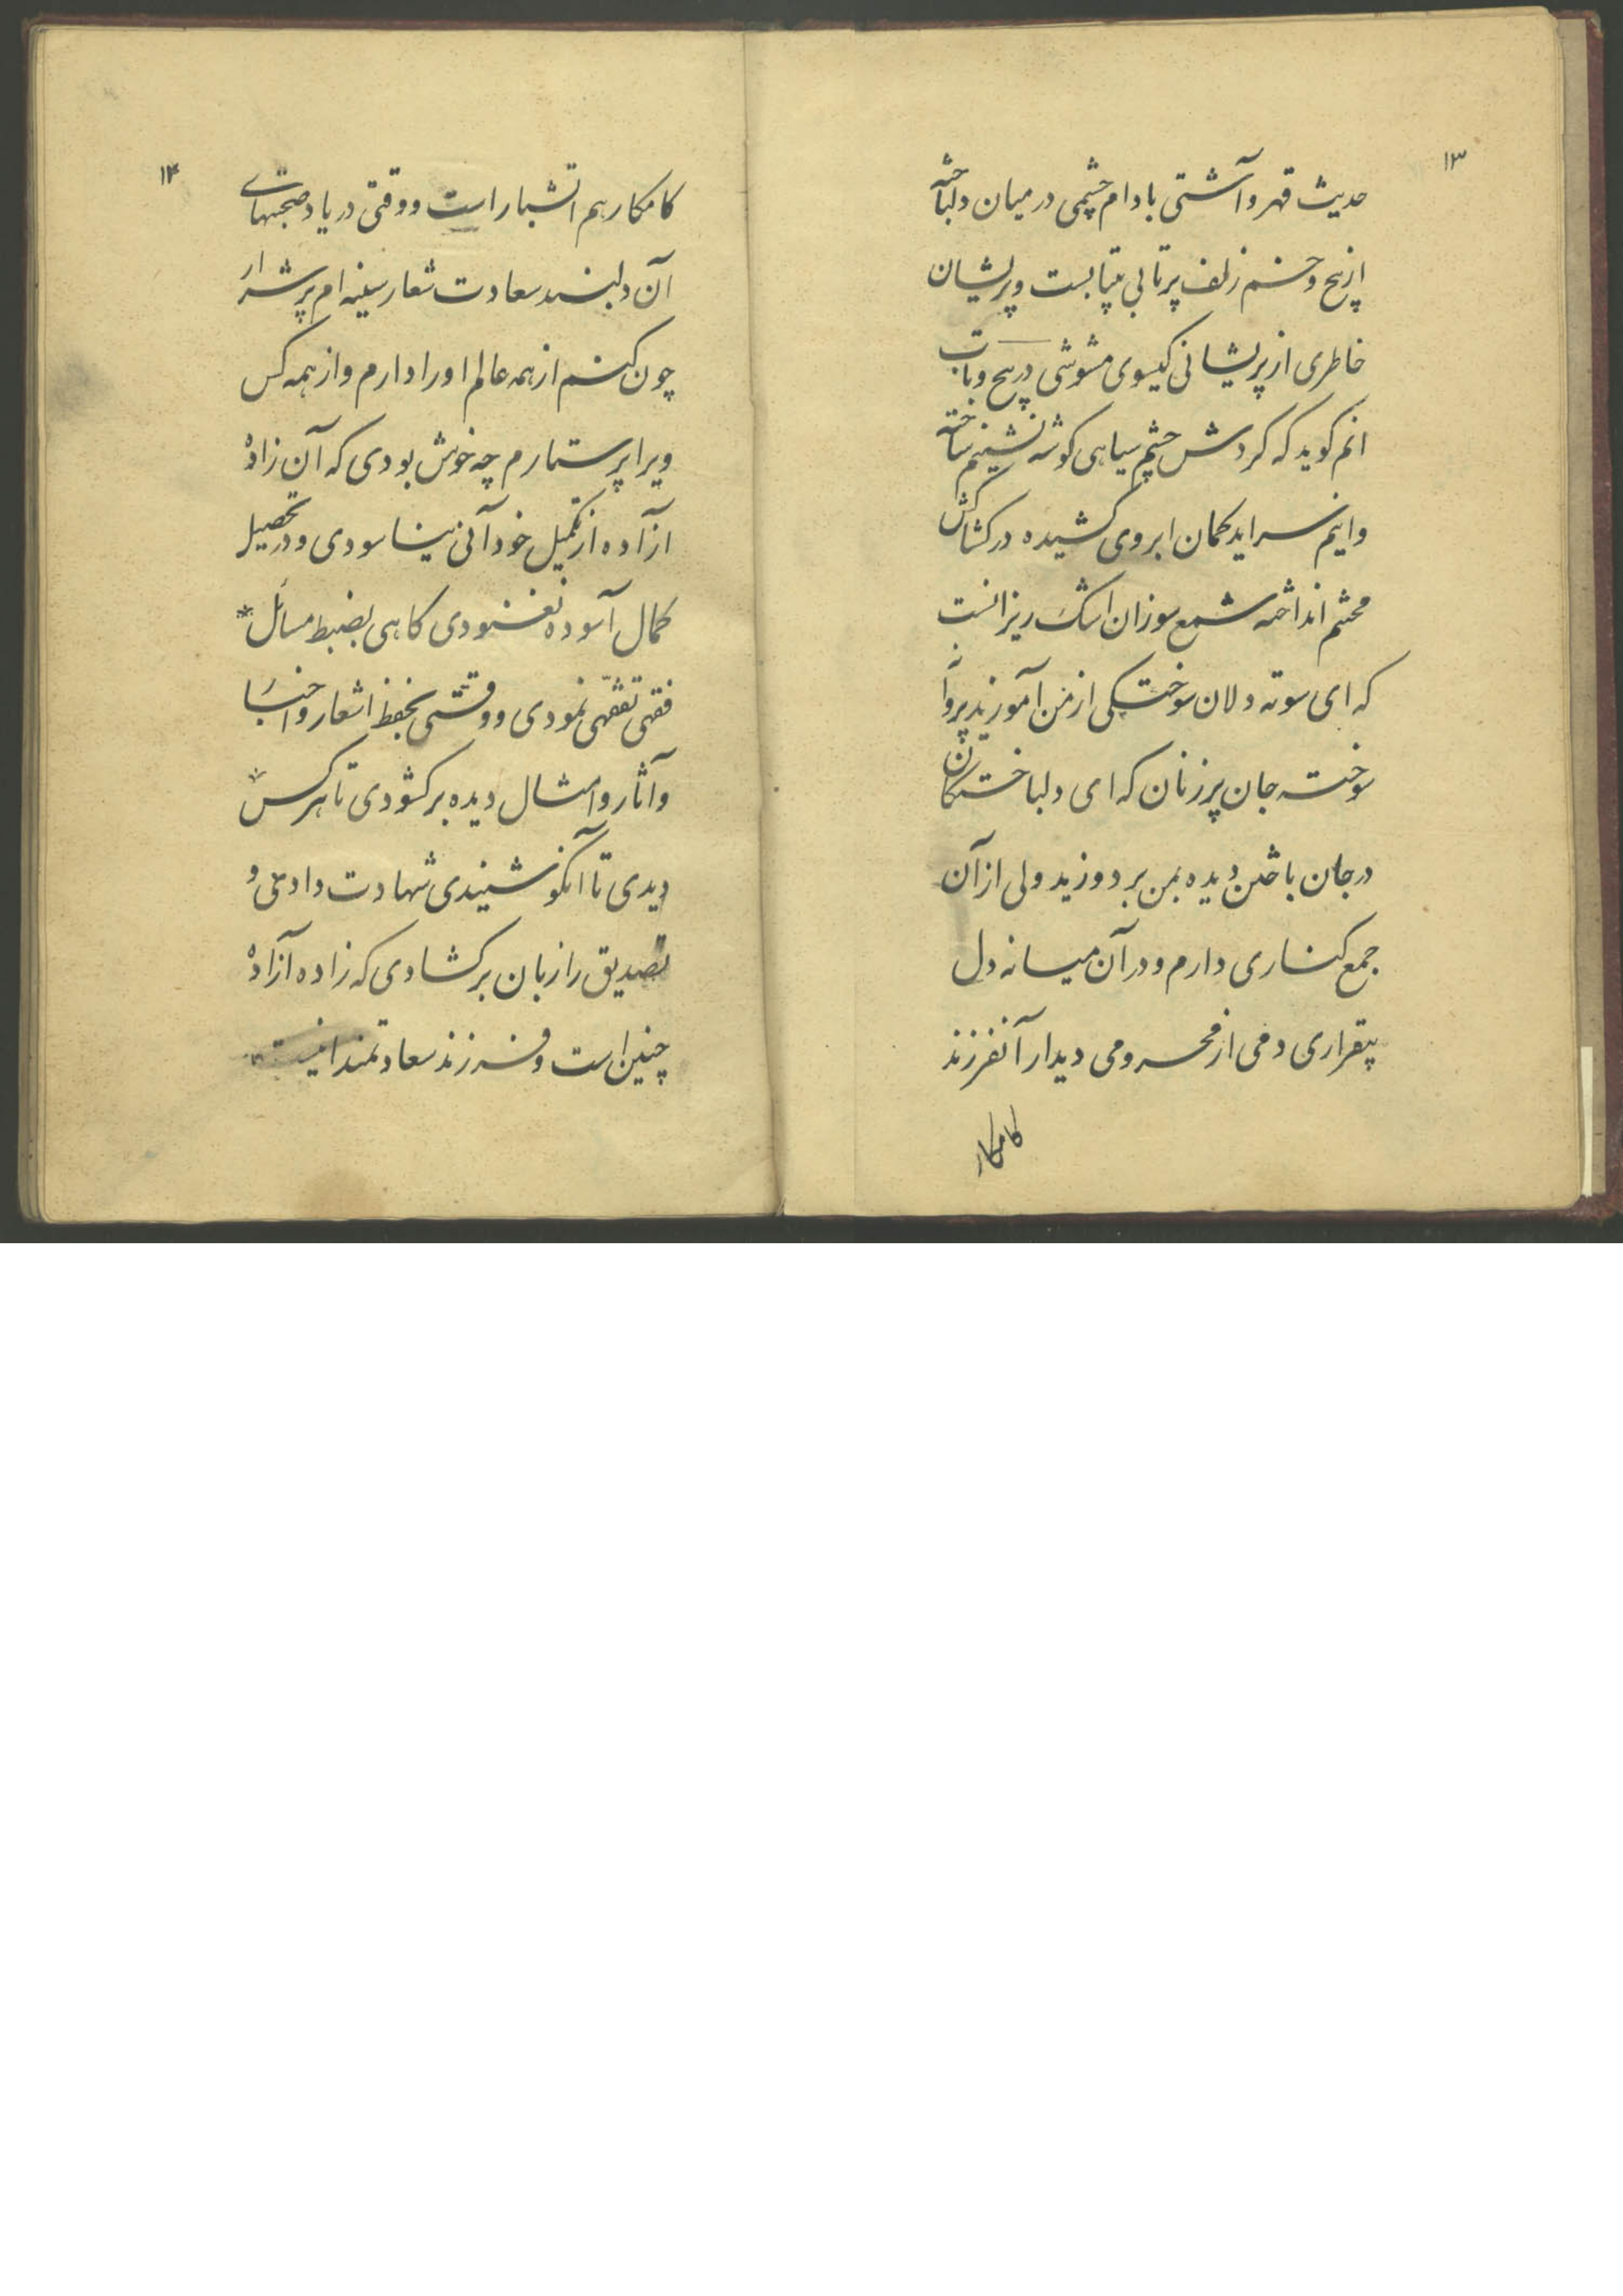 ۱۳
حدیث قهر و آشتی بادام چشمی در میان دلباخته
از پیچ و خم زلف پرتابی بیتابست و پریشان
خاطری از پریشانی کیسوی مشوشی در پیچ و تاب
انم کوید که کردش چشم سیاهی کوشه نشینم ساخته
و اینم سراید کمان ابروی کشیده در کشاکش
محشم انداخته شمع سوزان اشک ریزانست
که ای سوته دلان سوختکی از من آموزید پروانه
سوخته جان پرزنان که ای دلباختکان
در جان باختن دیده بمن بردوزید ولی از آن
جمع کناری دارم و در آن میانه دل
بیقراری دمی از محرومی دیدار آنفرزند
کامکار
۱۴
کامکارم اتشبار است و وقتی در یاد صحبتهای
آن دلبند سعادت شعار سینه ام پر شرار
چون کنم از همه عالم او را دارم و از همه کس
ویرا پرستارم چه خوش بودی که آن زاده
ازاده از تکمیل خود آنی نیاسودی و در تحصیل
کمال آسوده نغنودی کاهی بضبط مسائل
فقهی تفقهی نمودی و وقتی بحفظ اشعار و اخبار
و آثار و امثال دیده برکشودی تا هر کس
دیدی تا آنکو شنیدی شهادت دادی و
تصدیق را زبان برکشادی که زاده آزاده
چنین است و فرزند سعادتمند اینست